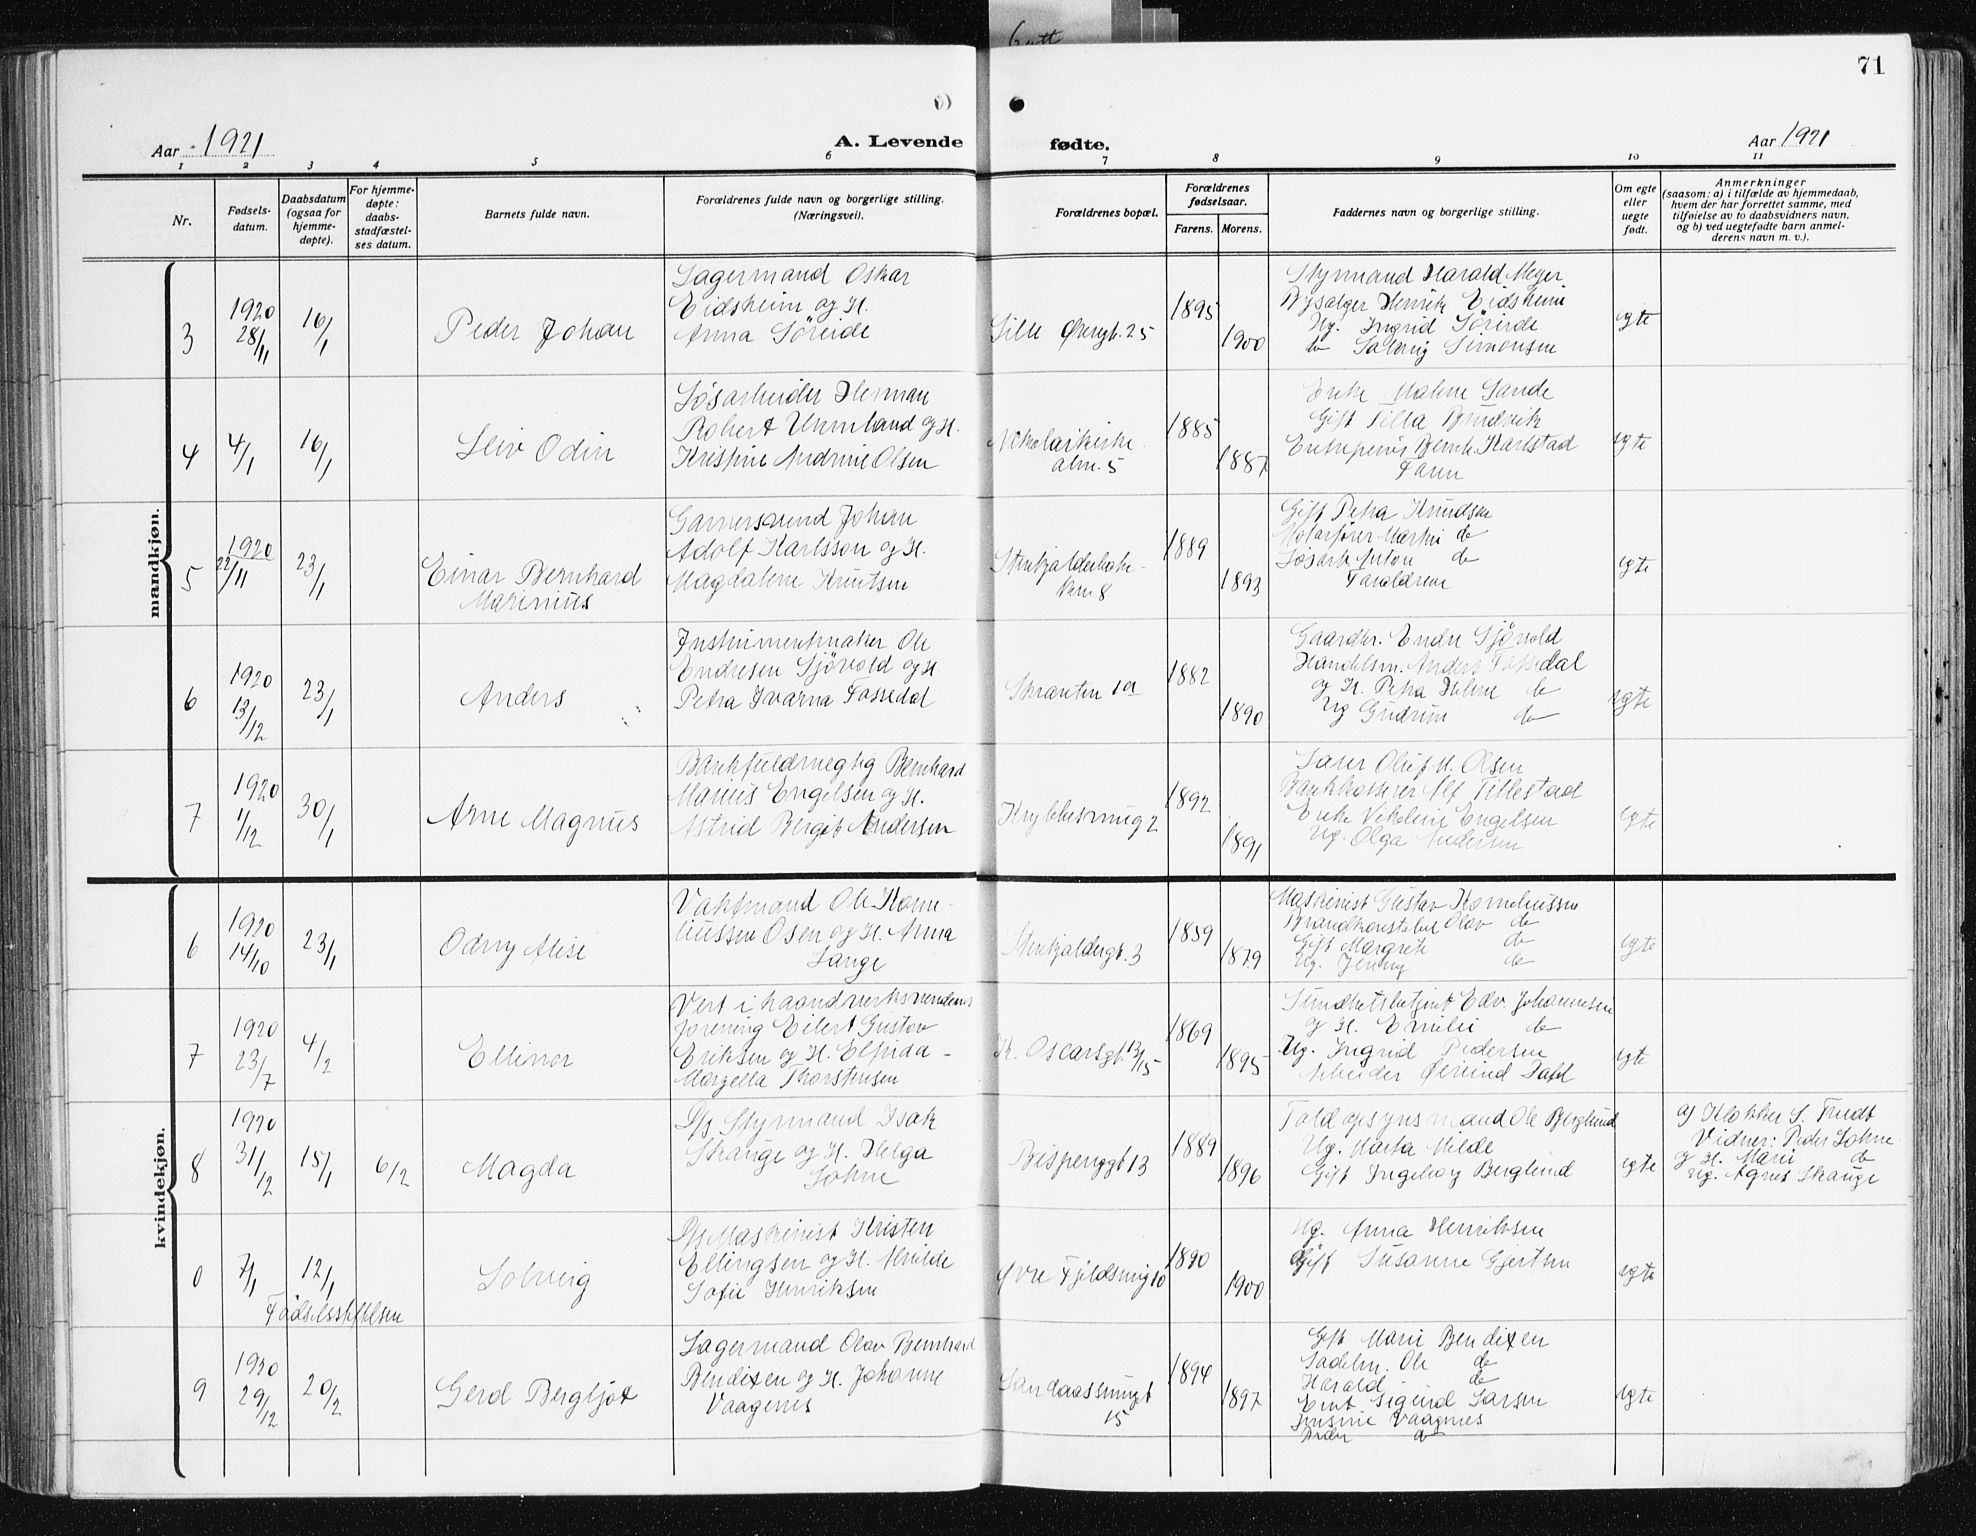 71
Aar 1921
A. Levende fødte.
Aar 1921
1 2 3 4 5 6 7 8 9 10 11
Nr.
Fødsels-
datum.
Daabsdatum
(ogsaa for
hjemme-
døpte).
For hjemme-
døpte:
daabs-
stadfæstel-
ses datum.
Barnets fulde navn.
Forældrenes fulde navn og borgerlige stilling.
(Næringsvei).
Forældrenes bopæl.
Forældrenes
fødselsaar.
Farens. Morens.
Faddernes navn og borgerlige stilling.
Om egte
eller
uegte
født.
Anmerkninger
(saasom: a) i tilfælde av hjemmedaab,
hvem der har forrettet samme, med
tilføielse av to daabsvidners navn,
og b) ved uegtefødte barn anmel-
derens navn m. v.).
mandkjøn.
3
1920
28/11
16/1
Peder Johan
Lagermand Oskar
Eidsheim og H.
Anna Söreide
Lille Øvregt. 25
1895
1900
Styrmand Harald Meyer
Henrik Eidsheim
Ug. Ingrid Söreide
do Solveig Simonsen
egte
4
4/1
16/1
Leiv Odin
Løsarbeider Herman
Robert og H.
Kristine Andrine Olsen
Nikolaikirke-
alm. 5
1885
1887
Enke Malene Sande
Gift Tilla Bruvik
Bernh. Karlstad
Faren
egte
5
1920
22/11
23/1
Einar Bernhard
Marinius
Garversvend Johan
Adolf Karlsson og H.
Magdalene Knutsen
1889
1893
Gift Petra Knudsen
Motorfører Martin do
Løsarb. Anton do
Forældrene
egte
6
1920
13/12
23/1
Anders
Instrumentmaker Ole
Endresen Sjövold og H
Petra Ivarna Fossedal
Skranten 1a
1882
1890
Gaardbr. Endre Sjövold
Handelsm. Anders Fossedal
og H. Petra Helene do
Ug Gudrun do
egte
7
1920
1/12
30/1
Arne Magnus
Bankfuldmegtig Bernhard
Marius Engelsen og H.
Astrid Bergit Andersen
Krybbesmug 2
1892
1891
Oluf M. Olsen
Bankkasserer Alf Tillestad
Enke Vikoline Engelsen
Ug. Olga Andersen
egte
kvindekjøn.
6
1920
14/10
23/1
Odny Alise
Vaktmand Ole Korne-
liussen Osen og H. Anna
Lange
Steinkjeldergt. 3
1859
1879
Maskinist Gustav Korneliussen
Brandkonstabel Olav do
Gift Margrete do
Ug. Jenny do
egte
7
1920
23/7
4/2
Ellinor
Vert i haandverksvendenes
forening Eilert Gustav
Eriksen og H. Elfrida
Margella Thorstensen
K. Oscarsgt. 13/15
1869
1895
Sundhetsbetjent Edv. Johannesen
og H. Emilie do
Ug. Ingrid Pedersen
Arbeider Øivind Dahl
egte
8
1920
31/12
15/1
6/2
Magda
Styrmand Isak
Skauge og H. Helga
Lohne
Bispenggt 13
1889
1896
Toldopsynsmand Ole Berglund
Ug. Marta Milde
Gift Ingeborg Berglund
egte
a) Klokker S. Trudt
Vidner: Peder Lohne
og H. Marie do
Ug. Agnes Skauge
0
7/1
12/1
Fødselsstiftelsen
Solveig
Maskinist Kristen
Ellingsen og H. Mulde
Sofie Henriksen
Øvre Fjeldsmug 10
1890
1900
Ug. Anna Henriksen
Gift Susanne Gjertsen
egte
9
1920
29/12
20/2
Gerd Bergljot
Lagermand Olav Bernhard
Bendixen og H. Johanne
Vaagenes
Sandaassmugt
15
1894
1897
Gift Marie Bendixen
Sadelm. Ole do
Harald do
Sigurd Larsen
Vaagenes
Peder do
egte